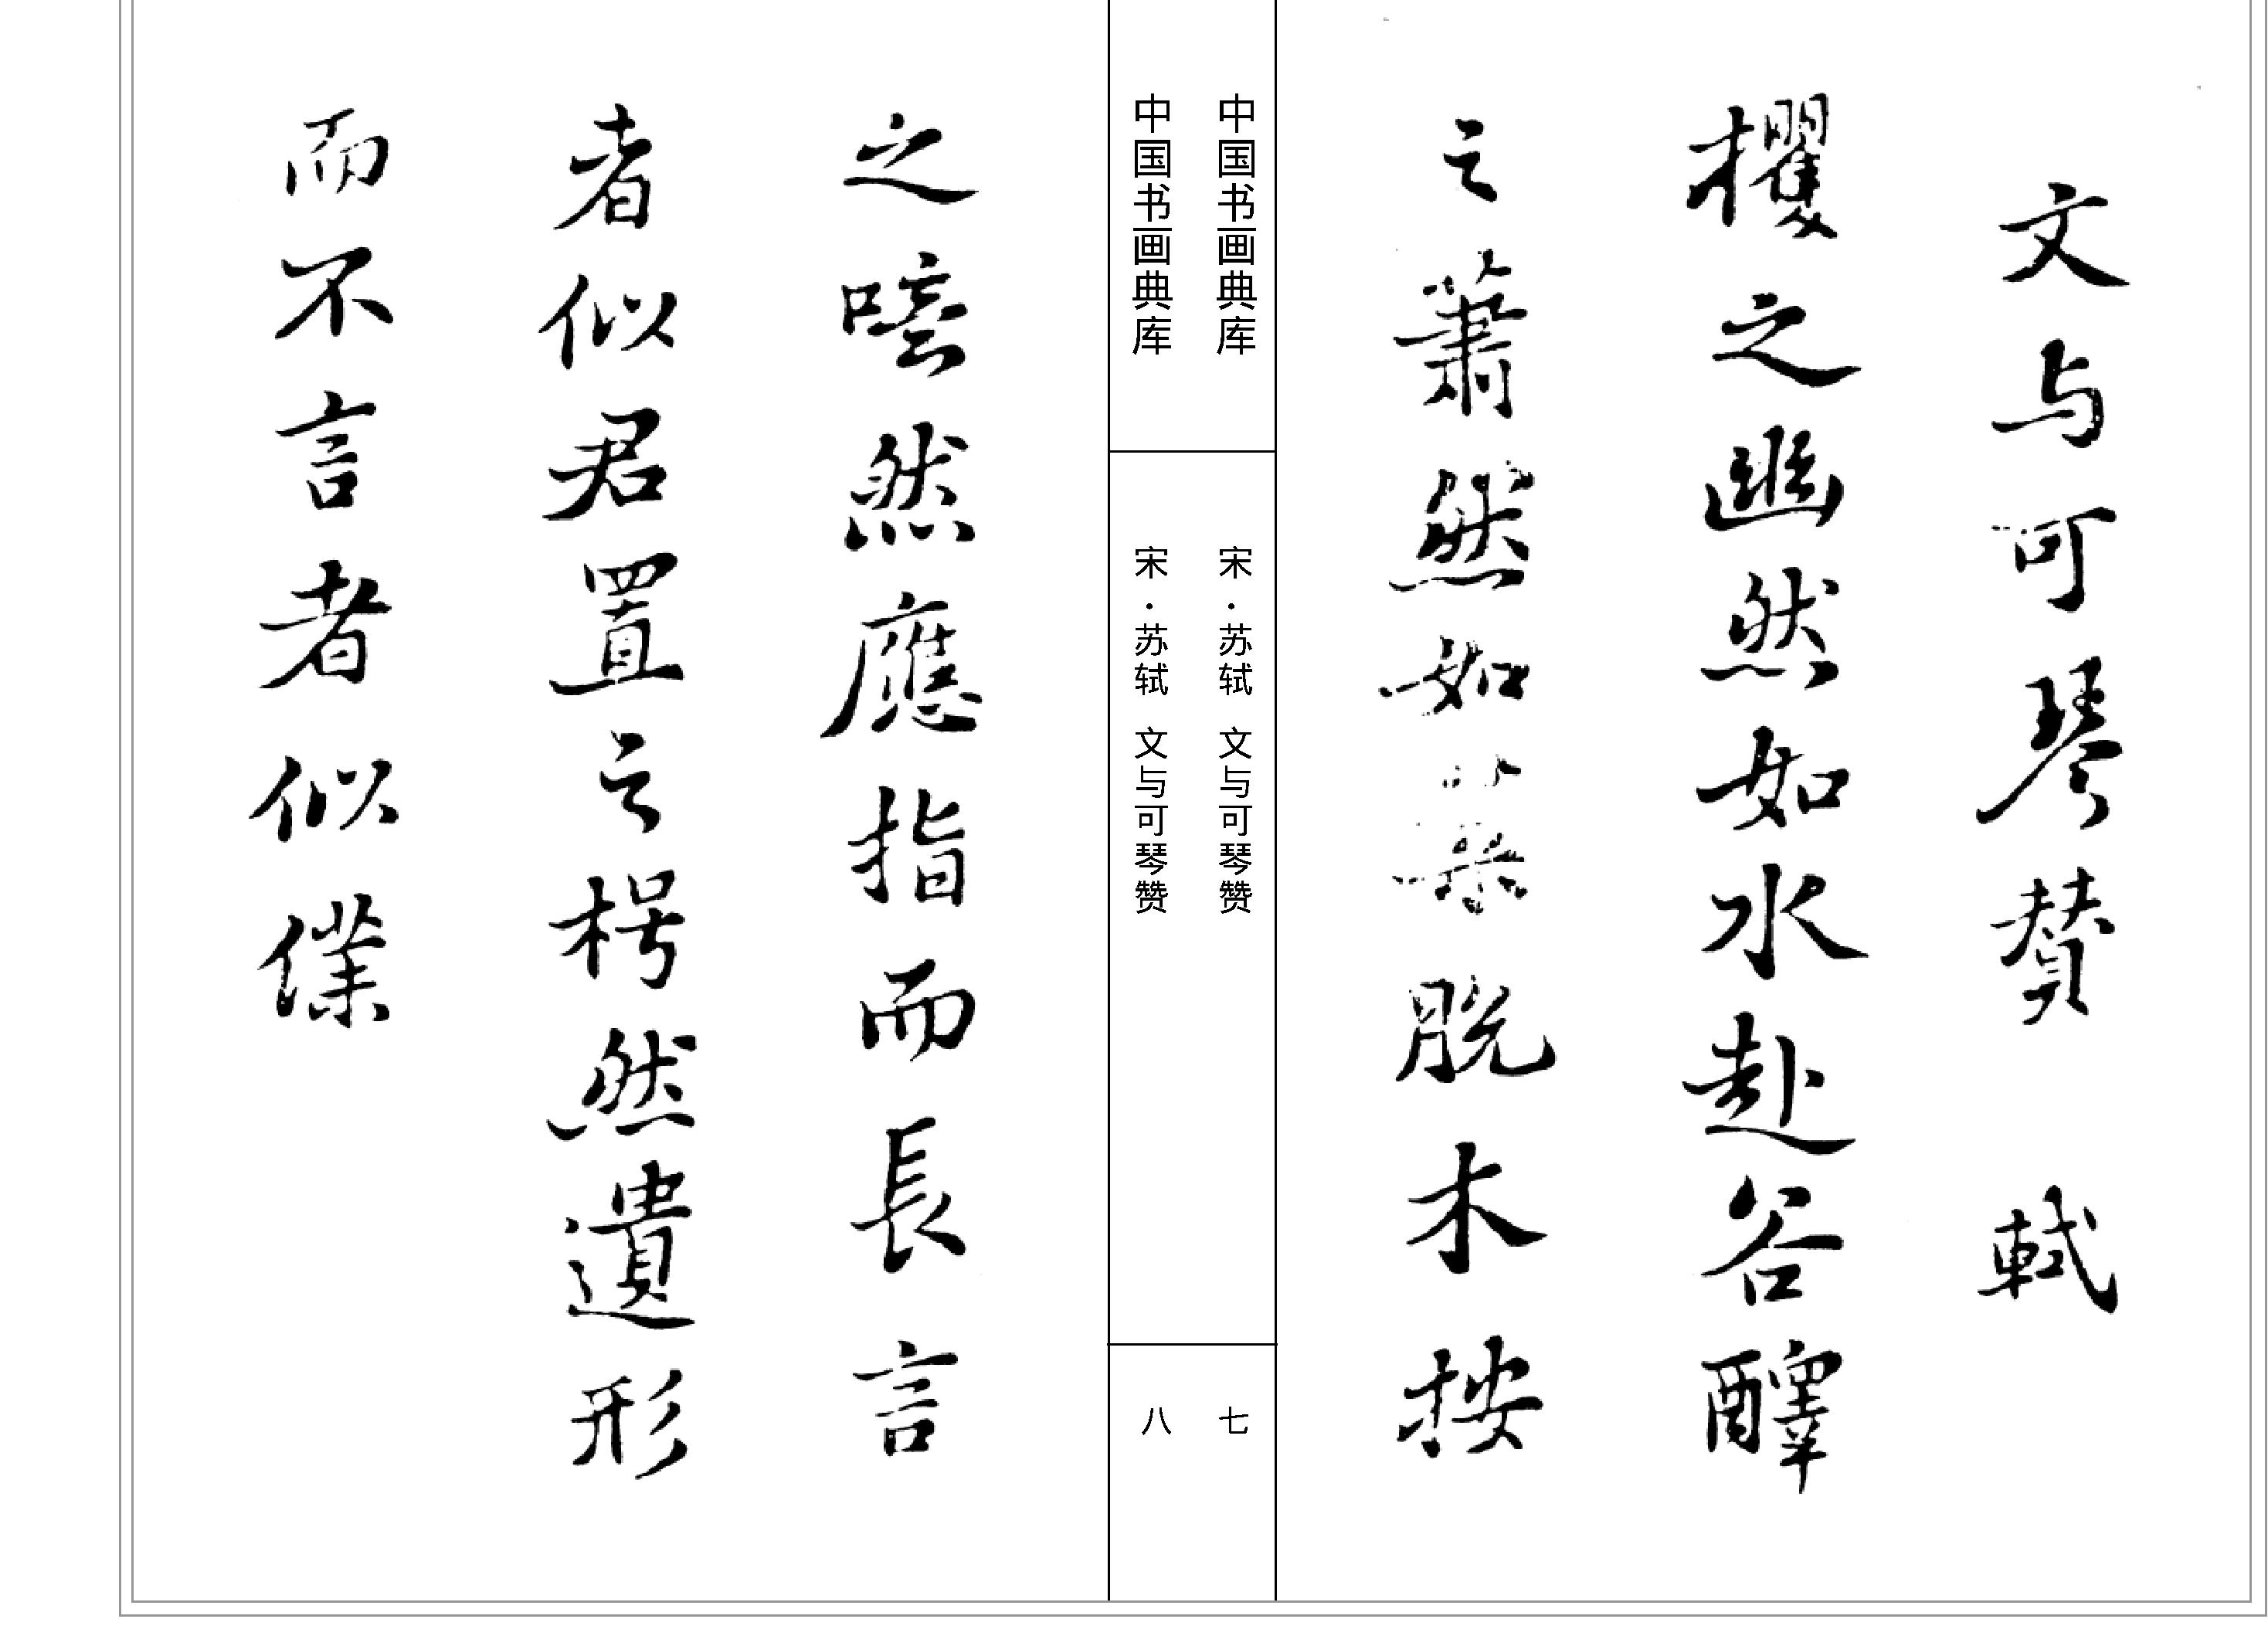 文与可琴賛 軾
攫之幽然如水赴谷醳
之蕭然如葉脱木按
中国书画典库 宋·苏轼 文与可琴赞 七
中国书画典库 宋·苏轼 文与可琴赞 八
之噫然應指而長言
者似君置之枵然遺形
而不言者似僕